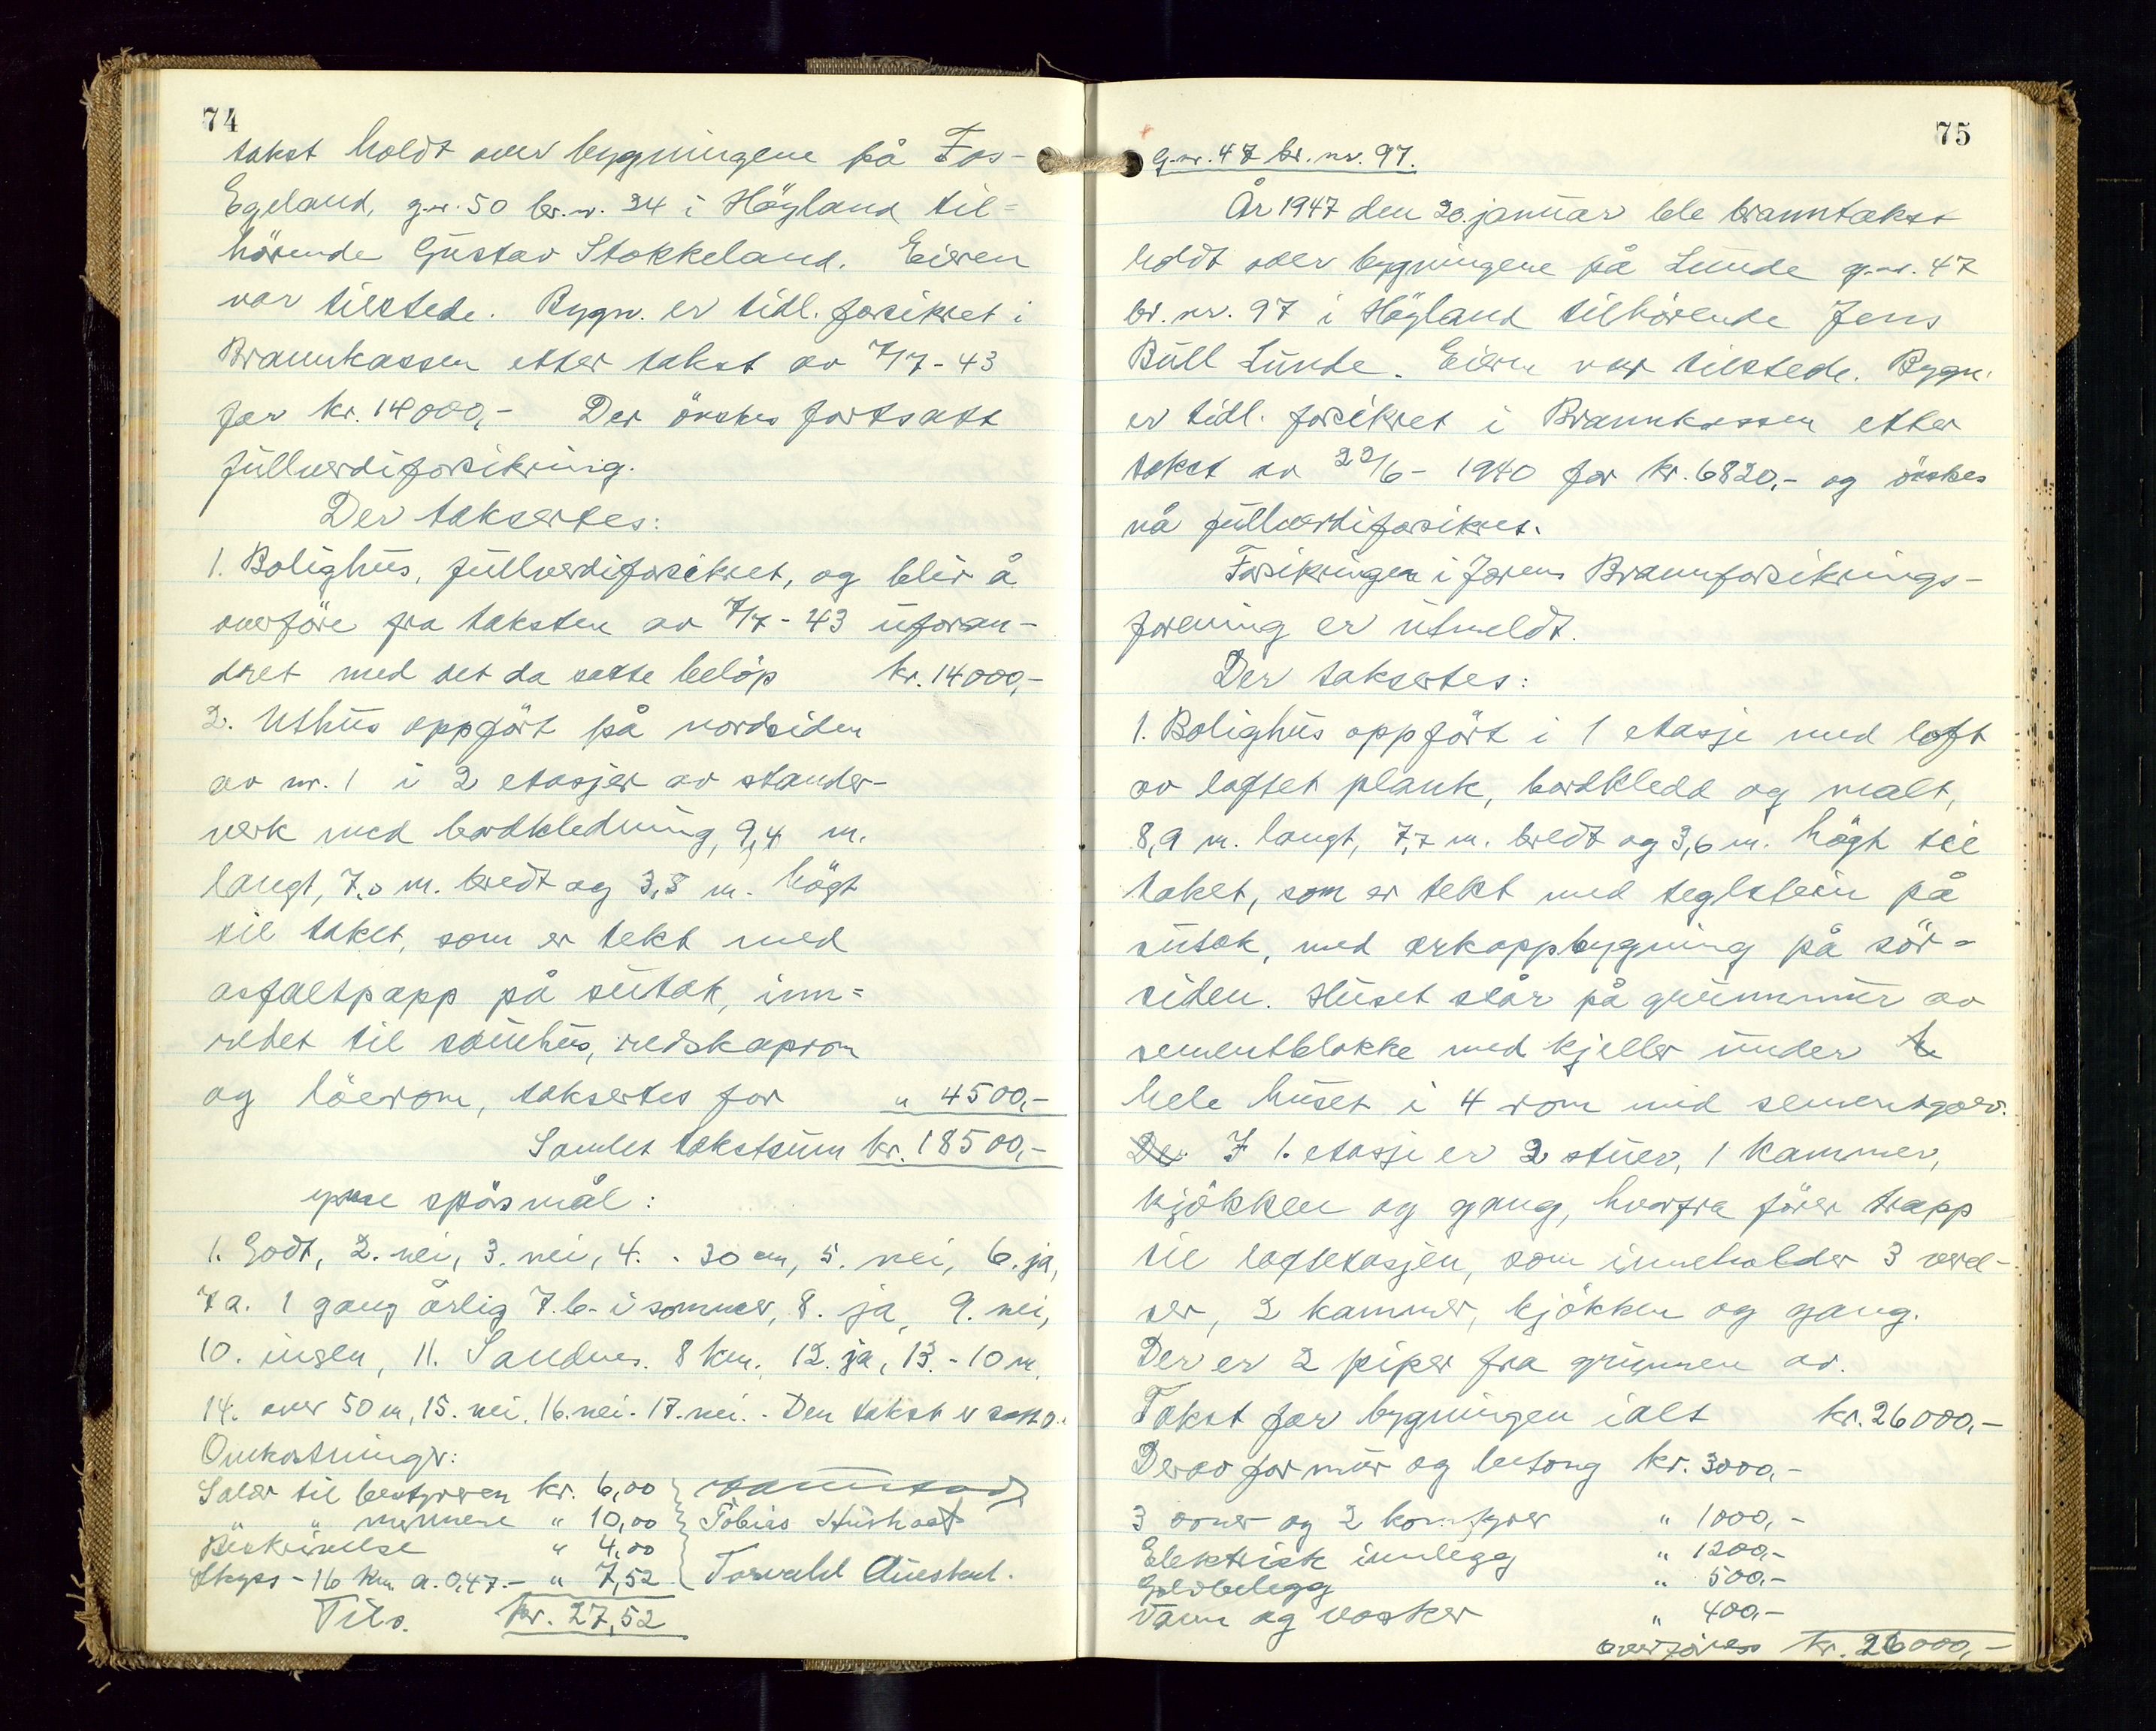 74
takst holdt over bygningene på Fos-
Egeland, g.nr. 50 br.nr. 34 i Höyland til=
hörende Gustav Stokkeland. Eieren
var tilstede. Bygn. er tidl. forsikret i
Brannkassen etter takst av 7/7-43
for kr. 14000,- Der önskes fortsatt
fullverdiforsikring.
Der taksertes:
1. Bolighus, fullverdiforsikret, og blir å
overföre fra taksten av 7/7-43 uforan-
dret med det da satte belöp kr. 14000,-
2. Uthus oppfört på nordsiden
av nr. 1 i 2 etasjer av stander-
verk med bordkledning, 9,4 m.
langt, 7,0 m. bredt og 3,8 m. högt
til taket, som er tekt med
asfaltpapp på sutak, inn=
redet til sauhus, redskaprom
og löerom, taksertes for " 4500,-
Samlet takstsum kr. 18500,-
spösmål:
1. Godt, 2. nei, 3. nei, 4. - 30 cm, 5. nei, 6. ja,
7 a. 1 gang årlig 7.b. i sommer, 8. ja, 9. nei,
10. ingen, 11. Sandnes. 8 km. 12. ja, 13. - 10 m.
14. over 50 m, 15. nei, 16. nei. 17. nei. - Den takst er satt o.
Omkostninger:
Salær til bestyreren kr. 6,00
" " mennene " 10,00 Tobias
Beskrivelse " 4,00
Skyss - 16 km a. 0,47.- " 7,52 Torvald Auestad.
Tils. kr. 27,52
75
G.nr. 47 br. nr. 97.
År 1947 den 20. januar ble branntakst
holdt over bygningene på Lunde g.nr. 47
br. nr. 97 i Höyland tilhörende Jens
Bull Lunde. Eieren var tilstede. Bygn.
er tidl. forsikret i Brannkassen etter
takst av 22/6 - 1940 for kr. 6820,- og önskes
nå fullverdiforsikret.
Forsikringen i Jærens Brannforsikrings-
forening er utmeldt.
Der taksertes:
1. Bolighus oppfört i 1 etasje med loft
av loftet plank, bordkledd og malt,
8,9 m. langt, 7,7 m. bredt og 3,6 m. högt til
taket, som er tekt med teglstein på
sutak, med arkoppbygning på sör-
siden. Huset står på grunnmur av
sementblokke med kjeller under
hele huset i 4 rom med sementgolv.
De I 1. etasje er 2 stuer, 1 kammer,
kjökken og gang, hvorfra förer trapp
til loftetasjen, som inneholder 3 verel-
ser, 2 kammer, kjökken og gang.
Der er 2 piper fra grunnen av.
Takst for bygningen ialt kr. 26000,-
Derav for mur og betong kr. 3000,-
3 ovner og 2 komfyrer " 1000,-
Elektrisk innlegg " 1200,-
Golvbelegg " 500,-
Vann og vasker " 400,-
overföres kr. 26000,-